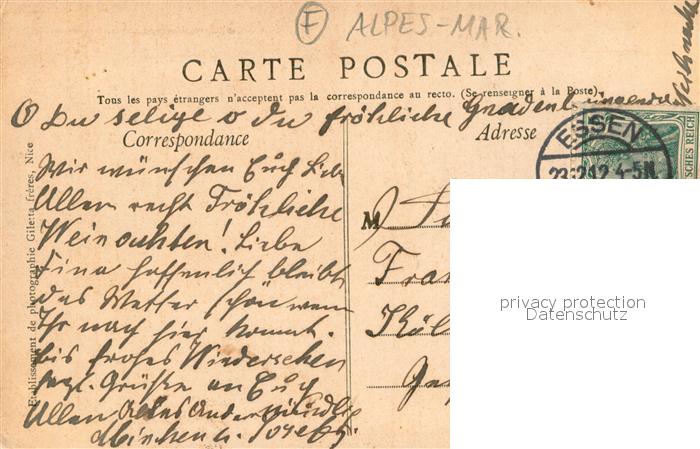 F ALPES-MAR.
CARTE POSTALE
Tous les pays étrangers n'acceptent pas la correspondance au recto. (Se renseigner à la Poste).
O Du selige o du fröhliche Gnadenbringende
Correspondance
Adresse
ESSEN
23.12.12 4-5N
DEUTSCHES REICH
Wir wünschen Euch Liebe
Allen recht Fröhliche
Weinachten! Liebe
Fina hoffentlich bleibt
das Wetter schön wenn
Ihr nach hier kommt.
bis frohes Wiedersehen
Grüße an Euch
Allen Alles Andere mündlich
M
Köl
Etablissement de photographie Giletta frères, Nice
privacy protection
Datenschutz